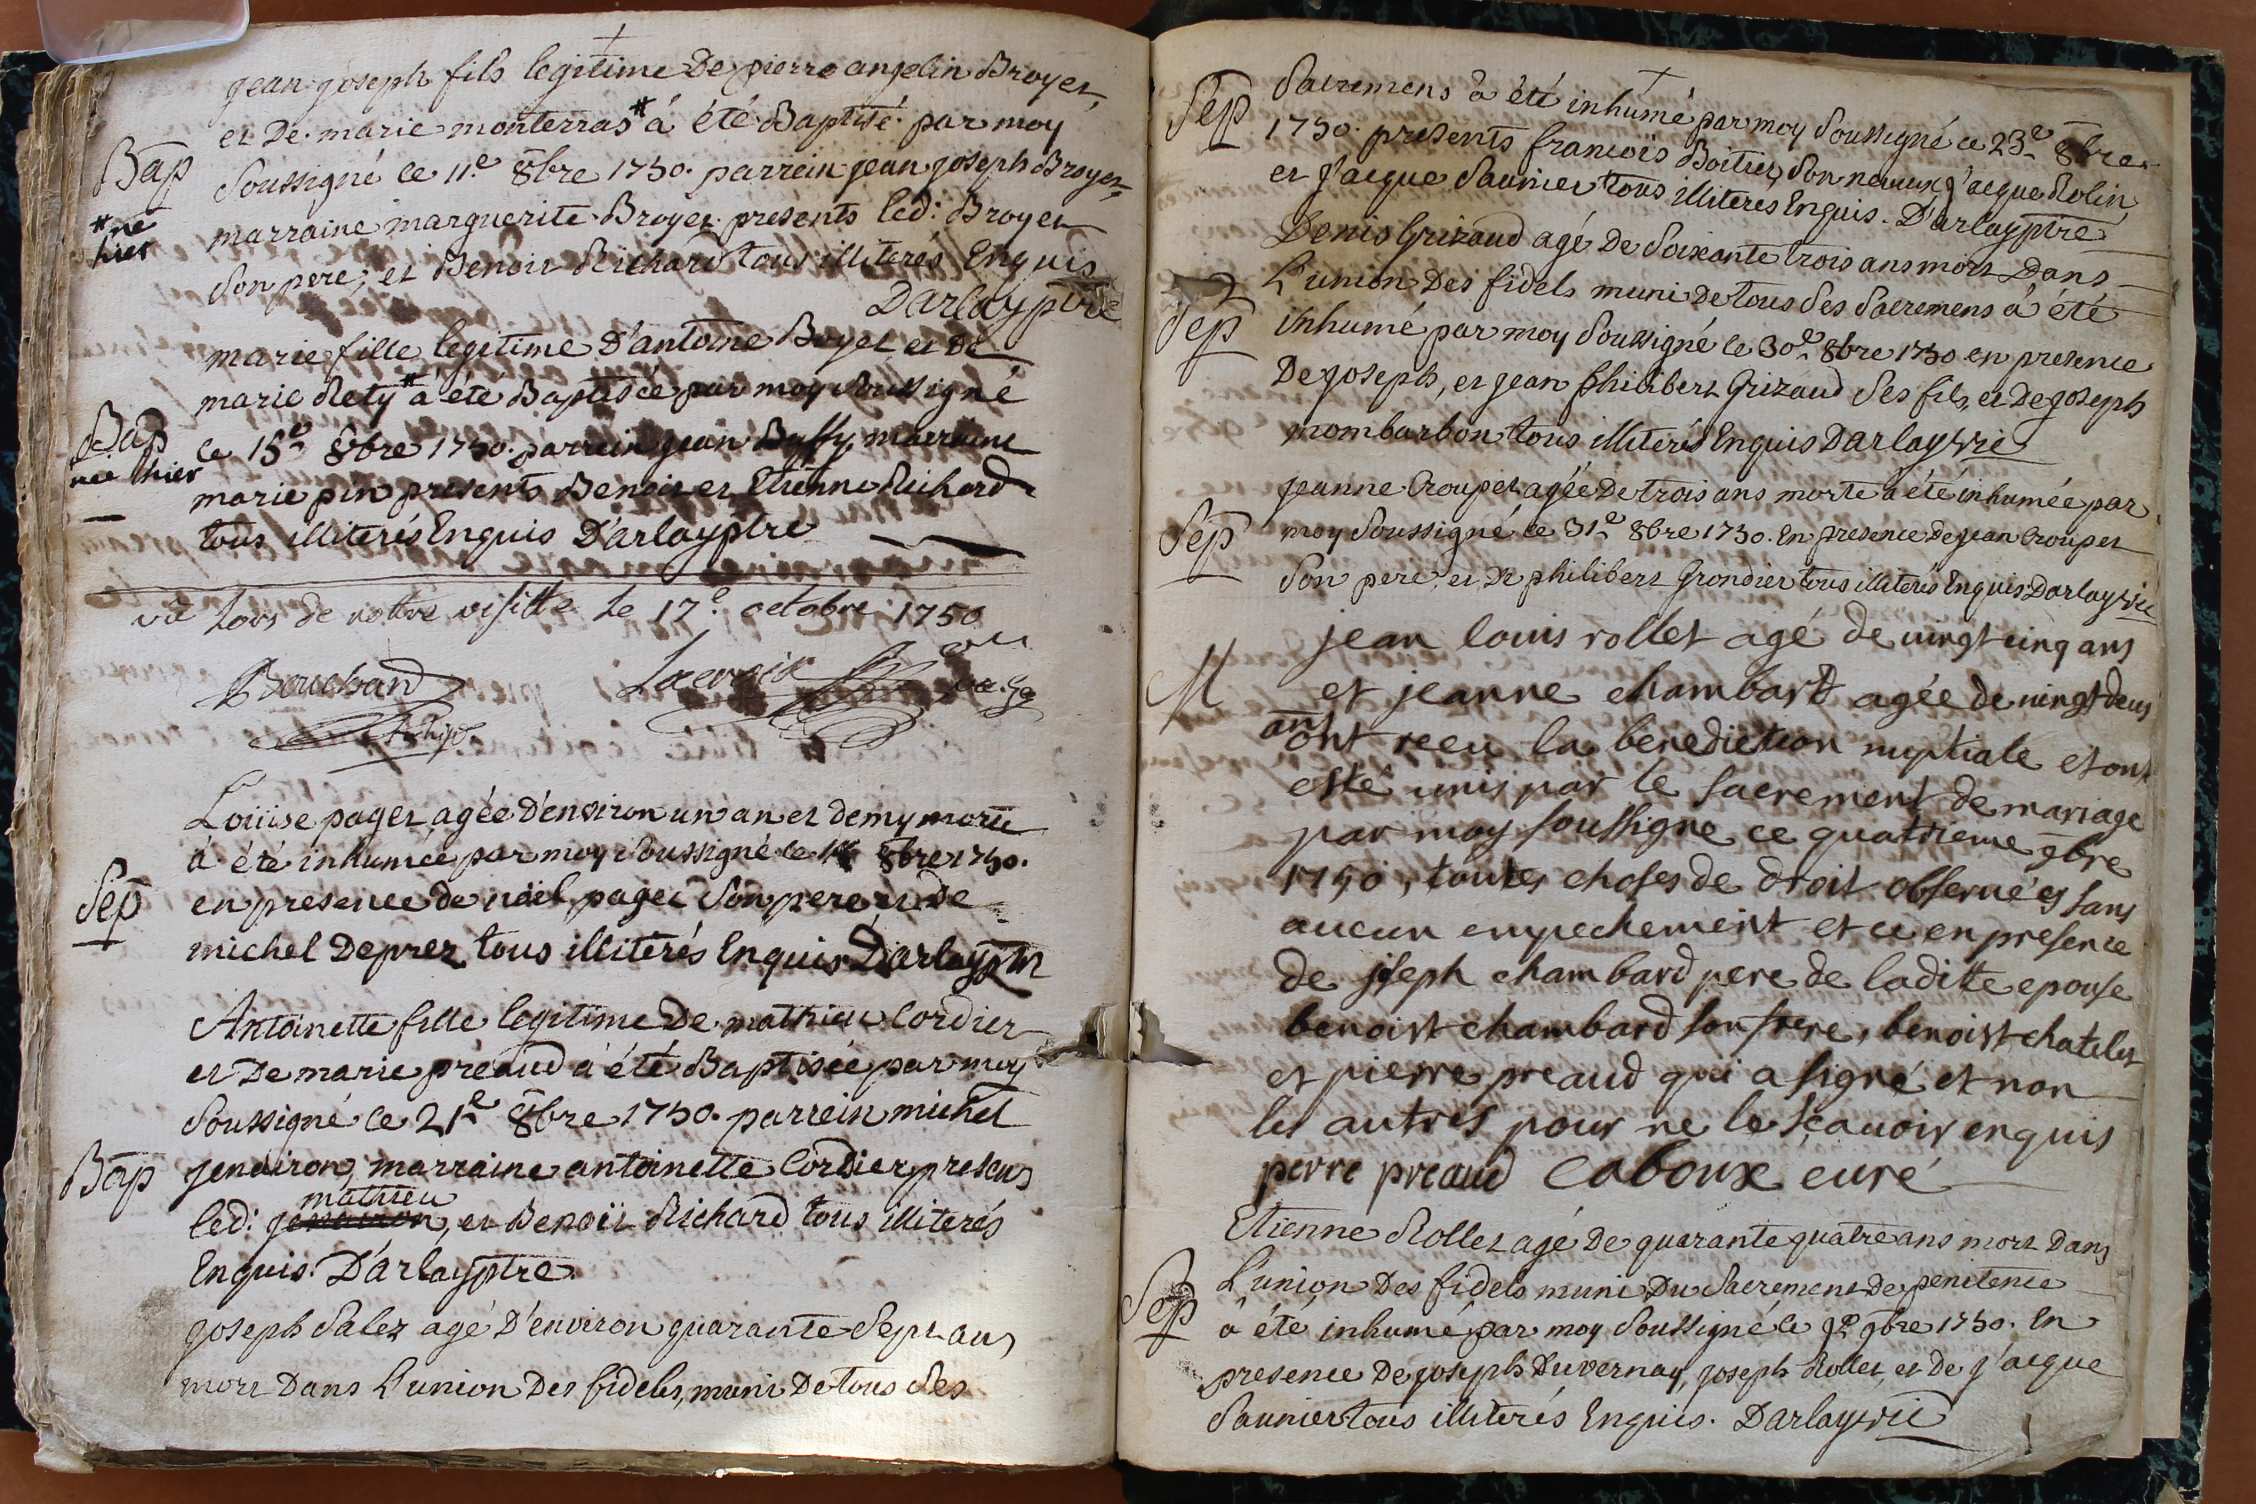 jean joseph fils legitime De pierre angelin Broyer,
et De marie monterras # á été Baptisé par moy
Bap
soussigné le 11e 8bre 1750. parrein jean joseph Broyer,
# né
hier
marraine marguerite Broyer presents led: Broyer
son pere, et Benoit Richard tous illiterés Enquis
Darlay ptre
marie fille legitime D'antoine Boyer et De
marie Rety # á été Baptisée par moy soussigné
Bap
née hier
le 15e 8bre 1750. parrein jean Buffy, marraine
marie pin presents Benoit et Etienne Richard
tous illiterés Enquis D'arlay ptre
vû Lors de nottre visitte Le 17e octobre 1750
Bouchard Lacroix
Archip.
Loüise paget agée D'environ un an et demy morte
á été inhumée par moy soussigné le 8bre 1750.
Sep
en presence de noël paget son pere et De
michel Deprez tous illiterés Enquis D'arlay ptr
Antoinette fille legitime De mathieu Cordier
et De marie préaud á été Baptisée par moy
soussigné le 21e 8bre 1750. parrein michel
Bap
jenairon, marraine antoinette Cordier presens
mathieu
led: jenairon, et Benoit Richard tous illiterés
Enquis. D'arlay ptre
joseph Salez agé D'environ quarante Sept ans
mort Dans L'union Des fideles, muni De tous Ses
Sep
Sacremens á été inhumé par moy Soussigné le 23e 8bre
1750. presents francois Boitier, son neveux j'acque Rolin
et j'acque Saunier tous illiteres Enquis. D'arlay ptre
Denis Grizaud agé De Soixante trois ans mort Dans
L'union Des fidels muni De tous Ses Sacremens á été
Sep
inhumé par moy Soussigné le 30e 8bre 1750 en presence
De joseph, et jean philibert Grizaud Ses fils, et De joseph
mombarbon tous illiterés Enquis Darlay vic
jeanne Croupet agée De trois ans morte á été inhumée par
Sep
moy Soussigné le 31e 8bre 1750. En presence De jean Croupet
Son pere, et De philibert Grondier tous illiterés Enquis Darlay vic
jean louis rollet agé de vingt cinq ans
M
et jeanne chambard agée de vingt deux
ans
ont receu la benediction nuptiale et ont
esté unis par le sacrement de mariage
par moy soussigne ce quatrieme 9bre
1750, toutes choses de droit observées sans
aucun empechement et ce en presence
de joseph chambard pere de laditte epouse
benoist chambard son frere, benoist chatelet
et pierre preaud qui a signé et non
les autres pour ne le sçavoir enquis
perre preaud Caboux curé
Etienne Rollet agé De quarante quatre ans mort Dans
L'union Des fidels muni Du Sacrement De penitence
Sep
á été inhumé par moy Soussigné le 9e 9bre 1750. En
presence De joseph Duvernay, joseph Rollet, et de j'acque
Saunier tous illiterés Enquis. Darlay vic